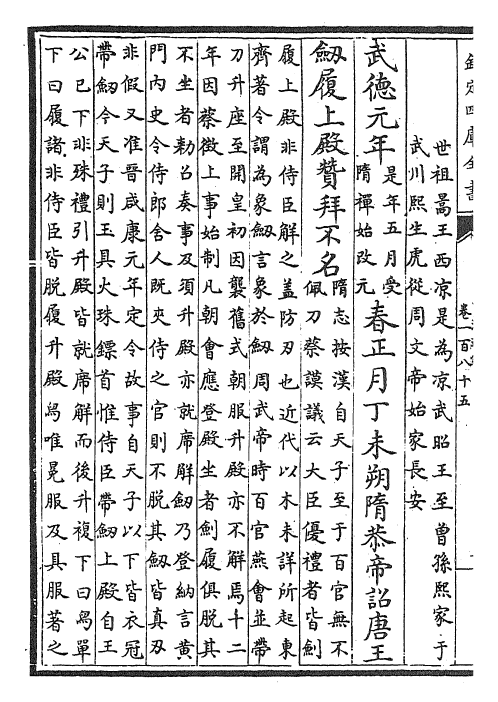 欽定四庫全書
卷一百八十五
世祖暠王西涼是為涼武昭王至曾孫熙家于
武川熙生虎從周文帝始家長安
武德元年是年五月受
隋禪始改元
春正月丁未朔隋恭帝詔唐王
劔履上殿贊拜不名
隋志按漢自天子至于百官無不
佩刀蔡謨議云大臣優禮者皆劍
履上殿非侍臣解之盖防刃也近代以木未詳所起東
齊著令謂為象劔言象於劔周武帝時百官燕會並帶
刀升座至開皇初因襲舊式朝服升殿亦不解焉十二
年因蔡徴上事始制凡朝會應登殿坐者劍履俱脱其
不坐者勑召奏事及須升殿亦就席解劔乃登納言黄
門内史令侍郎舍人既夾侍之官則不脱其劔皆真刃
非假又准晉咸康元年定令故事自天子以下皆衣冠
帶劔今天子則王具火珠鏢首惟侍臣帶劔上殿自王
公已下非珠禮引升殿皆就席解而後升複下曰舄單
下曰履諸非侍臣皆脱履升殿舄唯冕服及具服著之